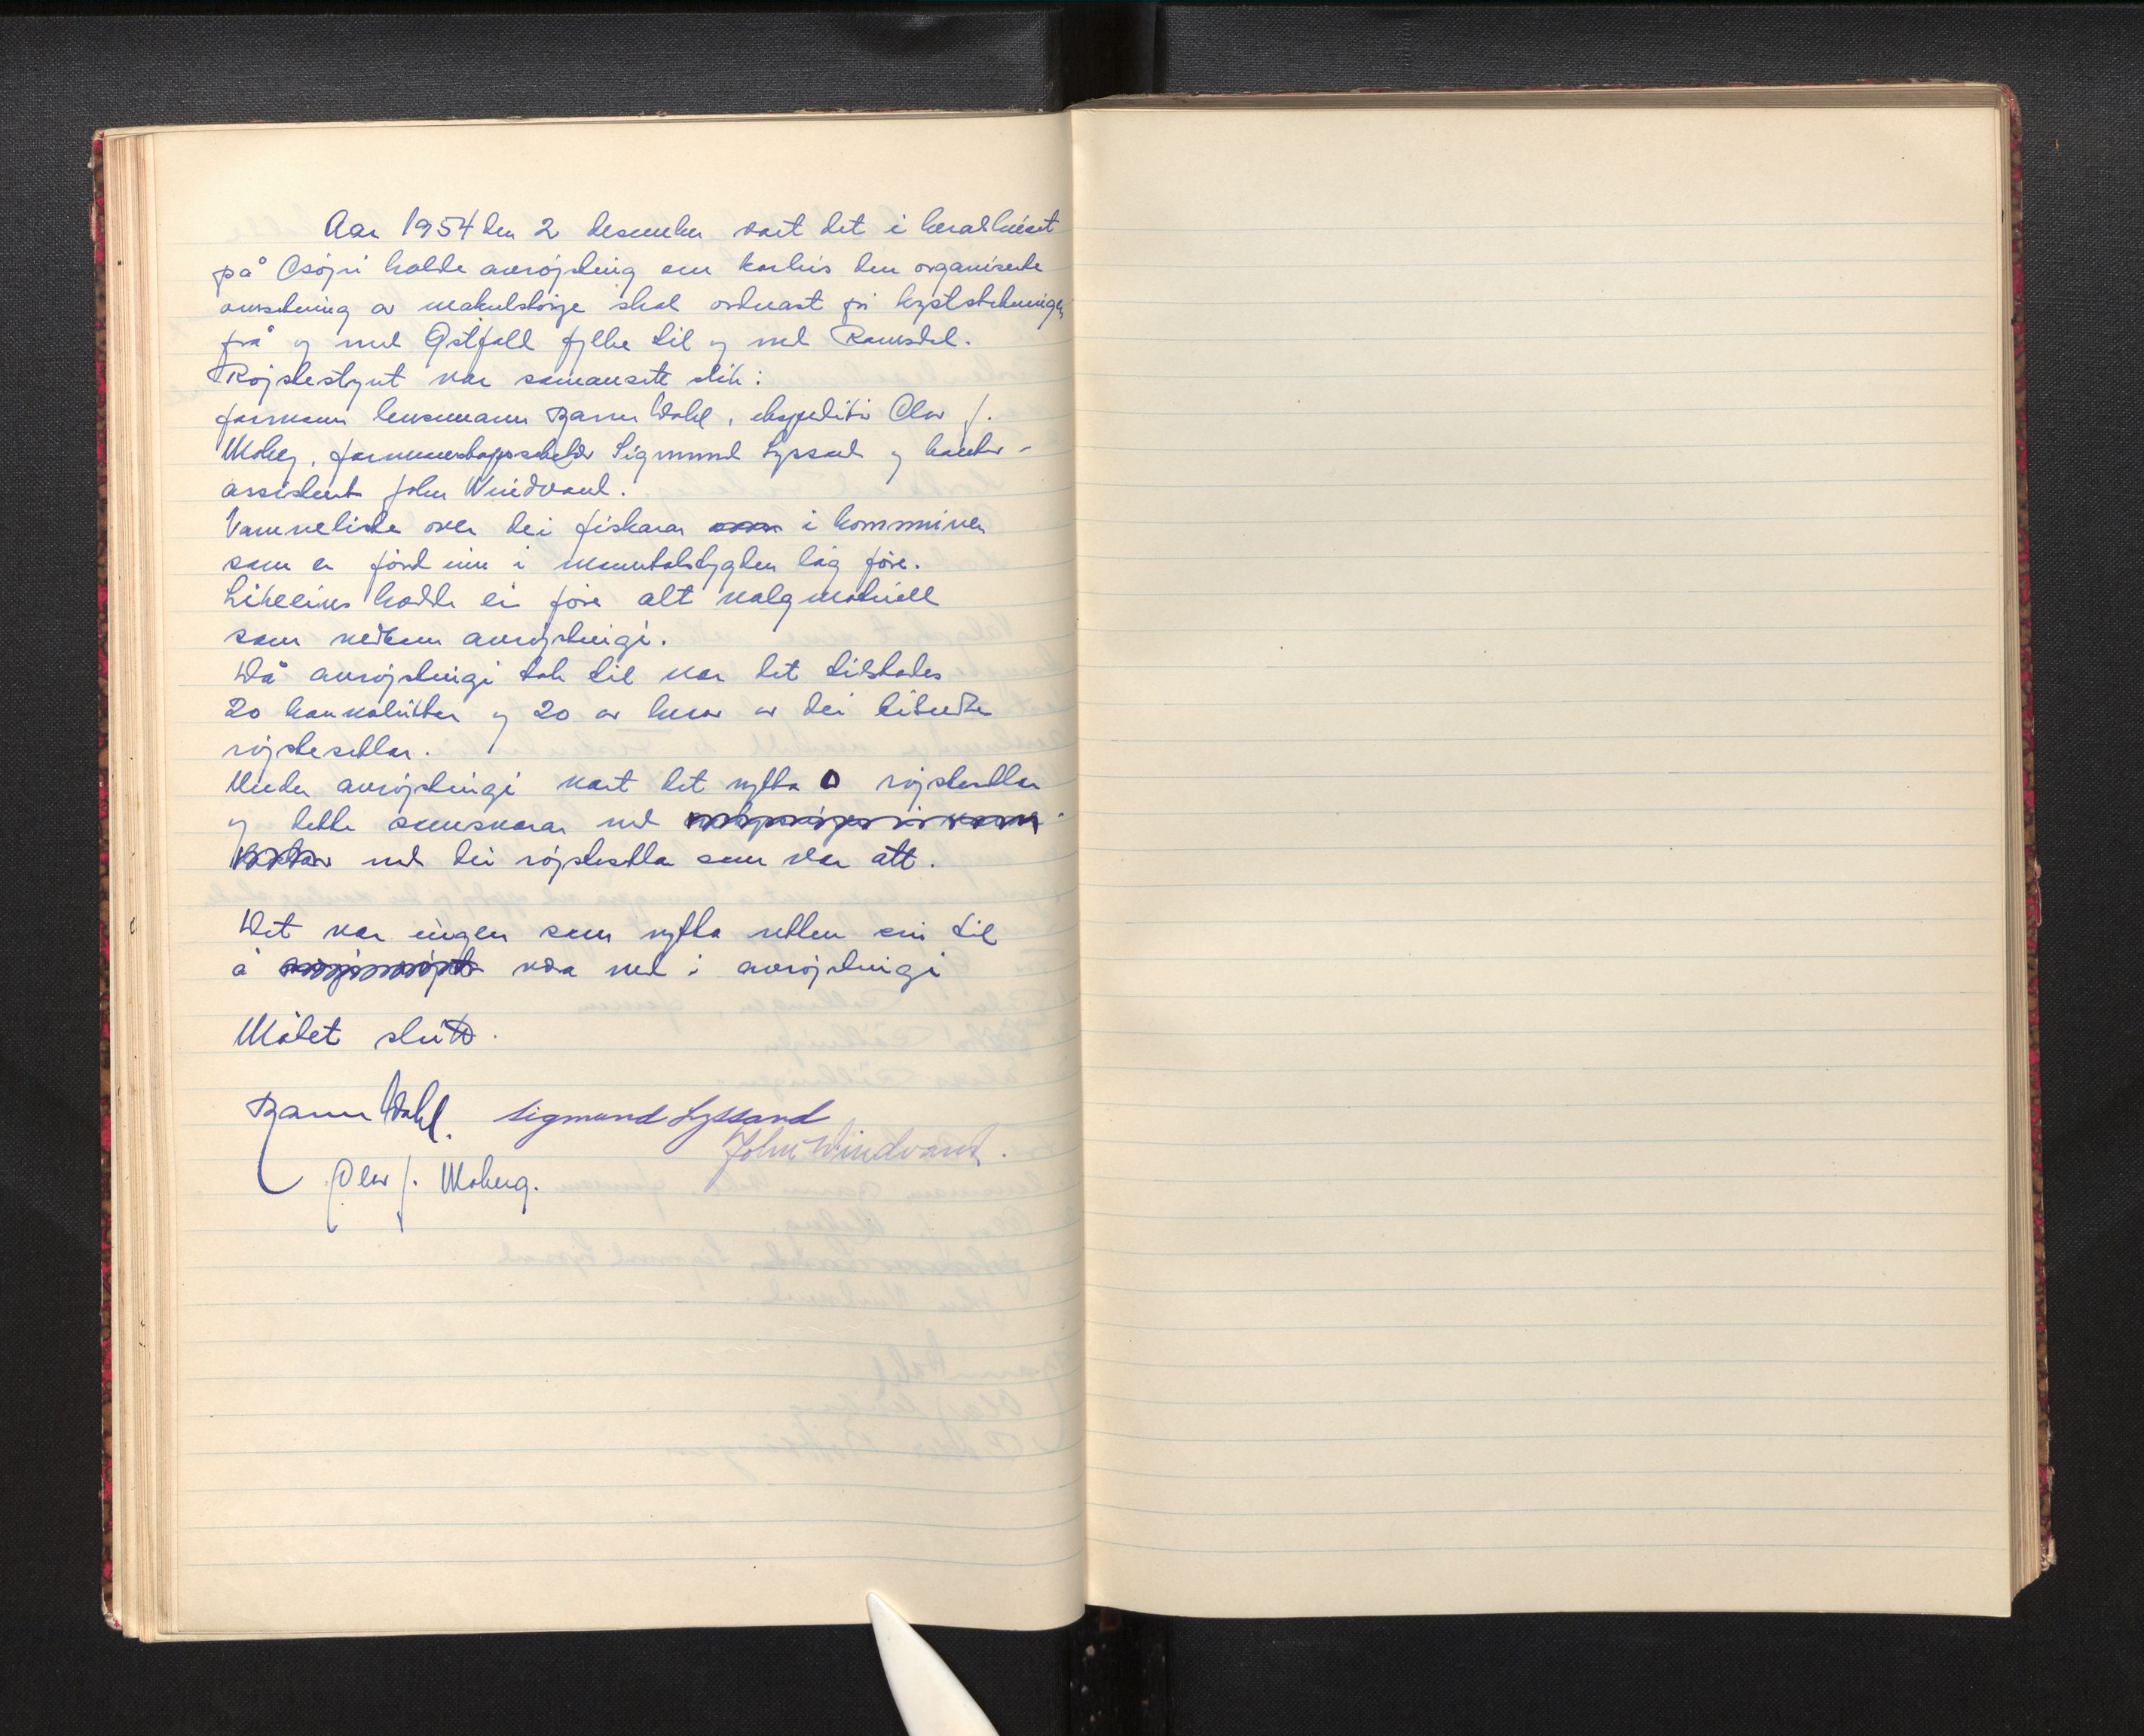 Aar 1954 den 2 desember vart det i heradhuset
på Osöyri halde avröysting om korleis den organiserte
omsetning av makrelstörje skal ordnast for kyststrekningen
frå og med Østfold fylke til og med Romsdal.
Röystestyret var samansett slik:
formann lensmann Bjarne Dahl, ekspeditör Olav J.
Moberg, formannskapssekretær Sigmund Lyssand og kontor-
assistent John Vindvand.
Namneliste over dei fiskarar i kommunen
som er förd inn i manntalsbygden låg före.
Likeeins hadde ein före alt valgmateriell
som vedkom avröystingi.
Då avröystingi tok til var det tilstades
20 konvolutter og 20 av kvar av dei likelydte
röystesetlar.
Under avröystingi vart det nytta 0 röystesetlar
og dette samsvarar med
med dei röystesetla som var att.
Det var ingen som nytta retten sin til
å vera med i avröystingi
Mötet slutt.
Bjarne Dahl. Sigmund Lyssand
John Vindvand.
Olav J. Moberg.